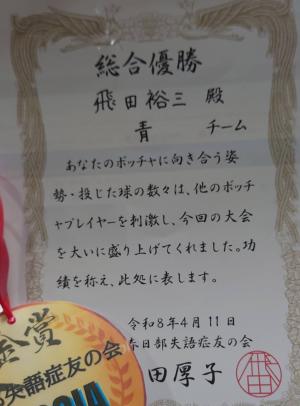 総合優勝
飛田裕三 殿
青 チーム
あなたのボッチャに向き合う姿
勢・投じた球の数々は、他のボッチ
ャプレイヤーを刺激し、今回の大会
を大いに盛り上げてくれました。功
績を称え、此処に表します。
令和8年4月11日
春日部失語症友の会
田厚子
賞
失語症友の会